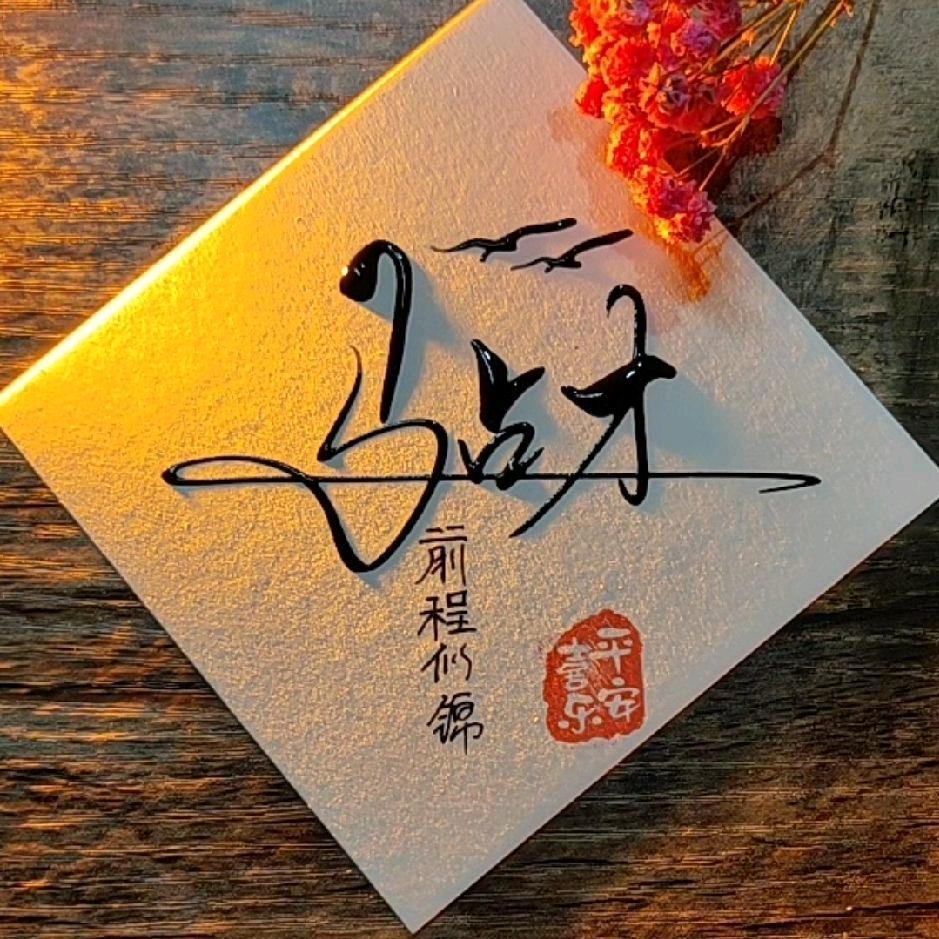 马占才
前程似锦
平安
喜乐